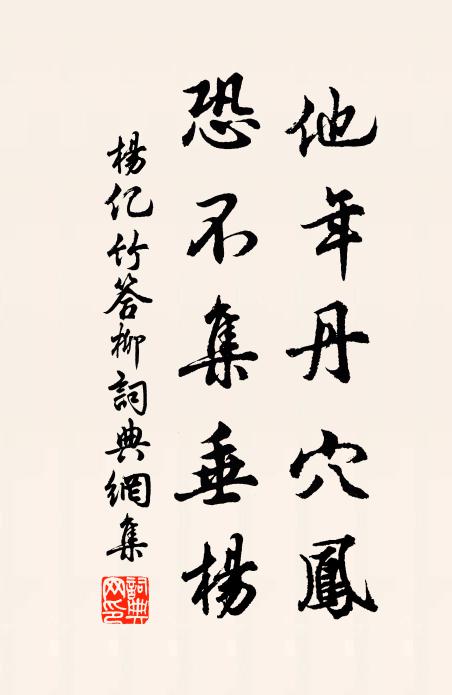 他年丹穴鳳
恐不集垂楊
楊亿竹答柳詞典網集
詞典网印